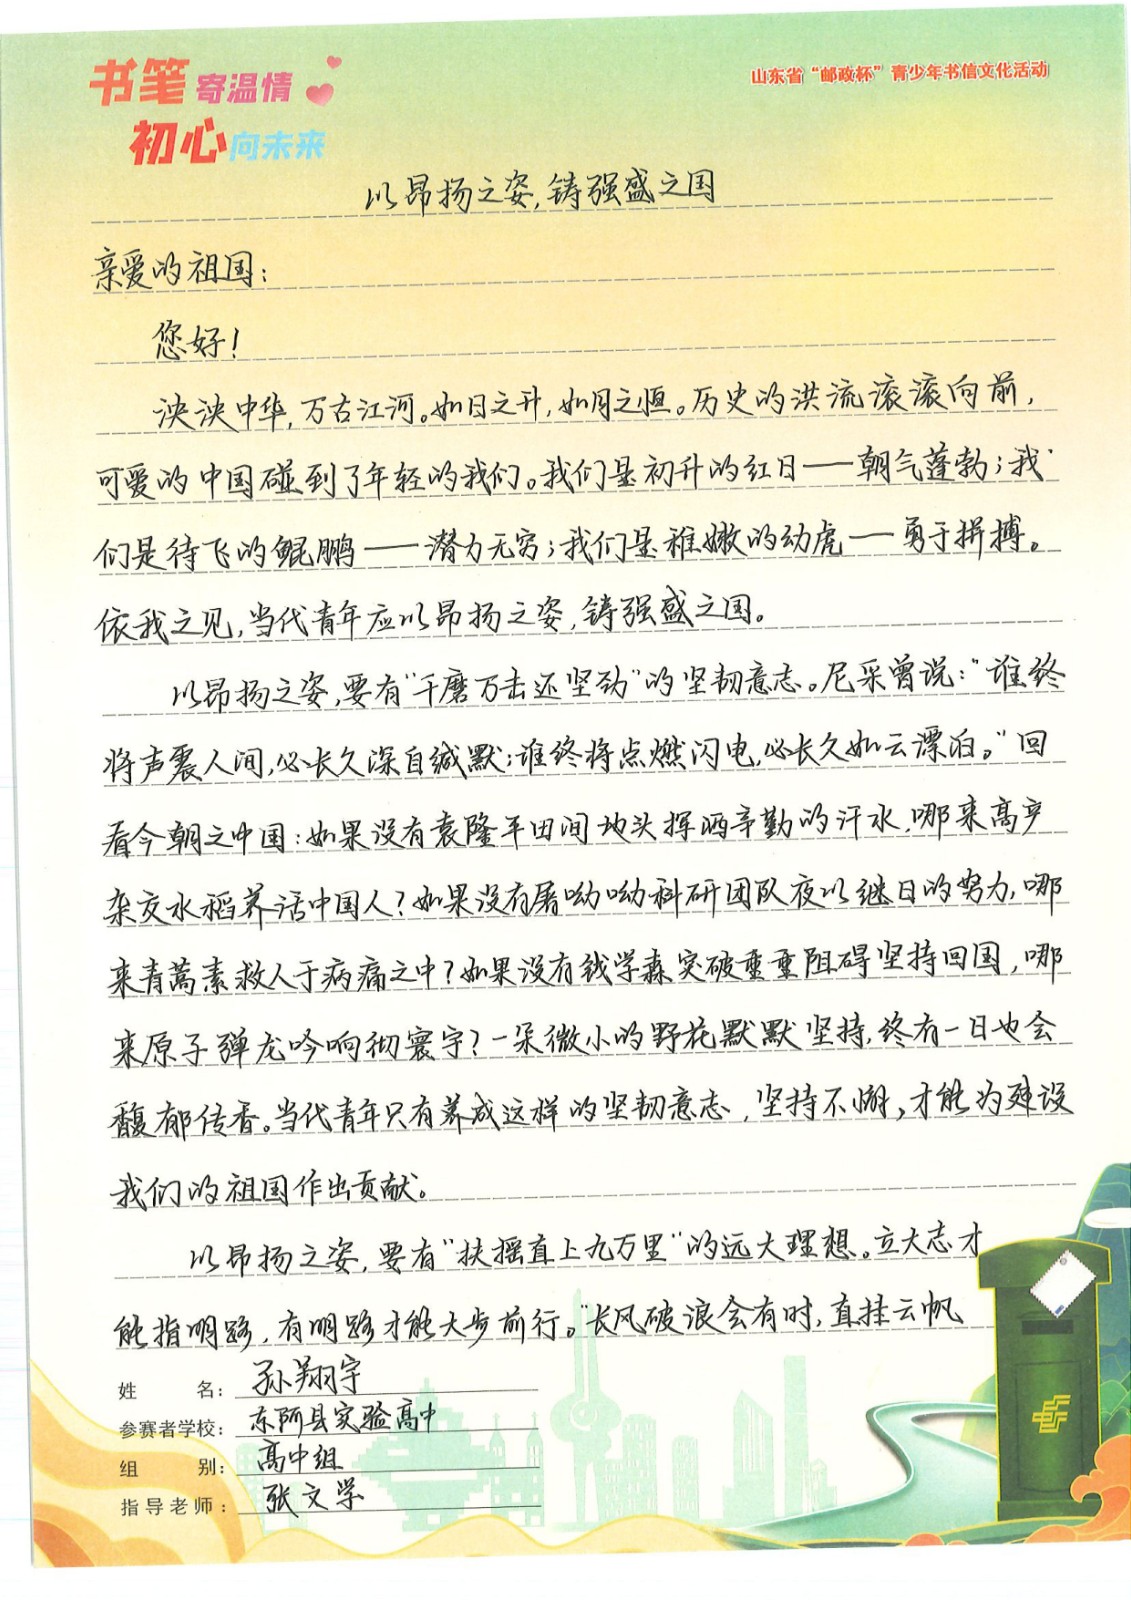 书笔寄温情
初心向未来
山东省“邮政杯”青少年书信文化活动
以昂扬之姿,铸强盛之国
亲爱的祖国:
您好!
泱泱中华,万古江河。如日之升,如月之恒。历史的洪流滚滚向前,
可爱的中国碰到了年轻的我们。我们是初升的红日——朝气蓬勃;我
们是待飞的鲲鹏——潜力无穷;我们是稚嫩的幼虎——勇于拼搏。
依我之见,当代青年应以昂扬之姿,铸强盛之国。
以昂扬之姿,要有“千磨万击还坚劲”的坚韧意志。尼采曾说:“谁终
将声震人间,必长久深自缄默;谁终将点燃闪电,必长久如云漂泊。”回
看今朝之中国:如果没有袁隆平田间地头挥洒辛勤的汗水,哪来高产
杂交水稻养活中国人?如果没有屠呦呦科研团队夜以继日的努力,哪
来青蒿素救人于病痛之中?如果没有钱学森突破重重阻碍坚持回国,哪
来原子弹龙吟响彻寰宇?一朵微小的野花默默坚持,终有一日也会
馥郁传香。当代青年只有养成这样的坚韧意志,坚持不懈,才能为建设
我们的祖国作出贡献。
以昂扬之姿,要有“扶摇直上九万里”的远大理想。立大志才
能指明路,有明路才能大步前行。“长风破浪会有时,直挂云帆
姓名:孙翔宇
参赛者学校:东阿县实验高中
组别:高中组
指导老师:张文学